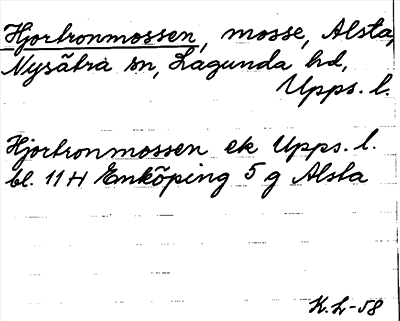 Hjortronmossen, mosse, Alsta,
Nysätra sn, Lagunda hd,
Upps. l.
Hjortronmossen ek Upps. l.
bl. 11 H Enköping 5 g Alsta
K.L-58